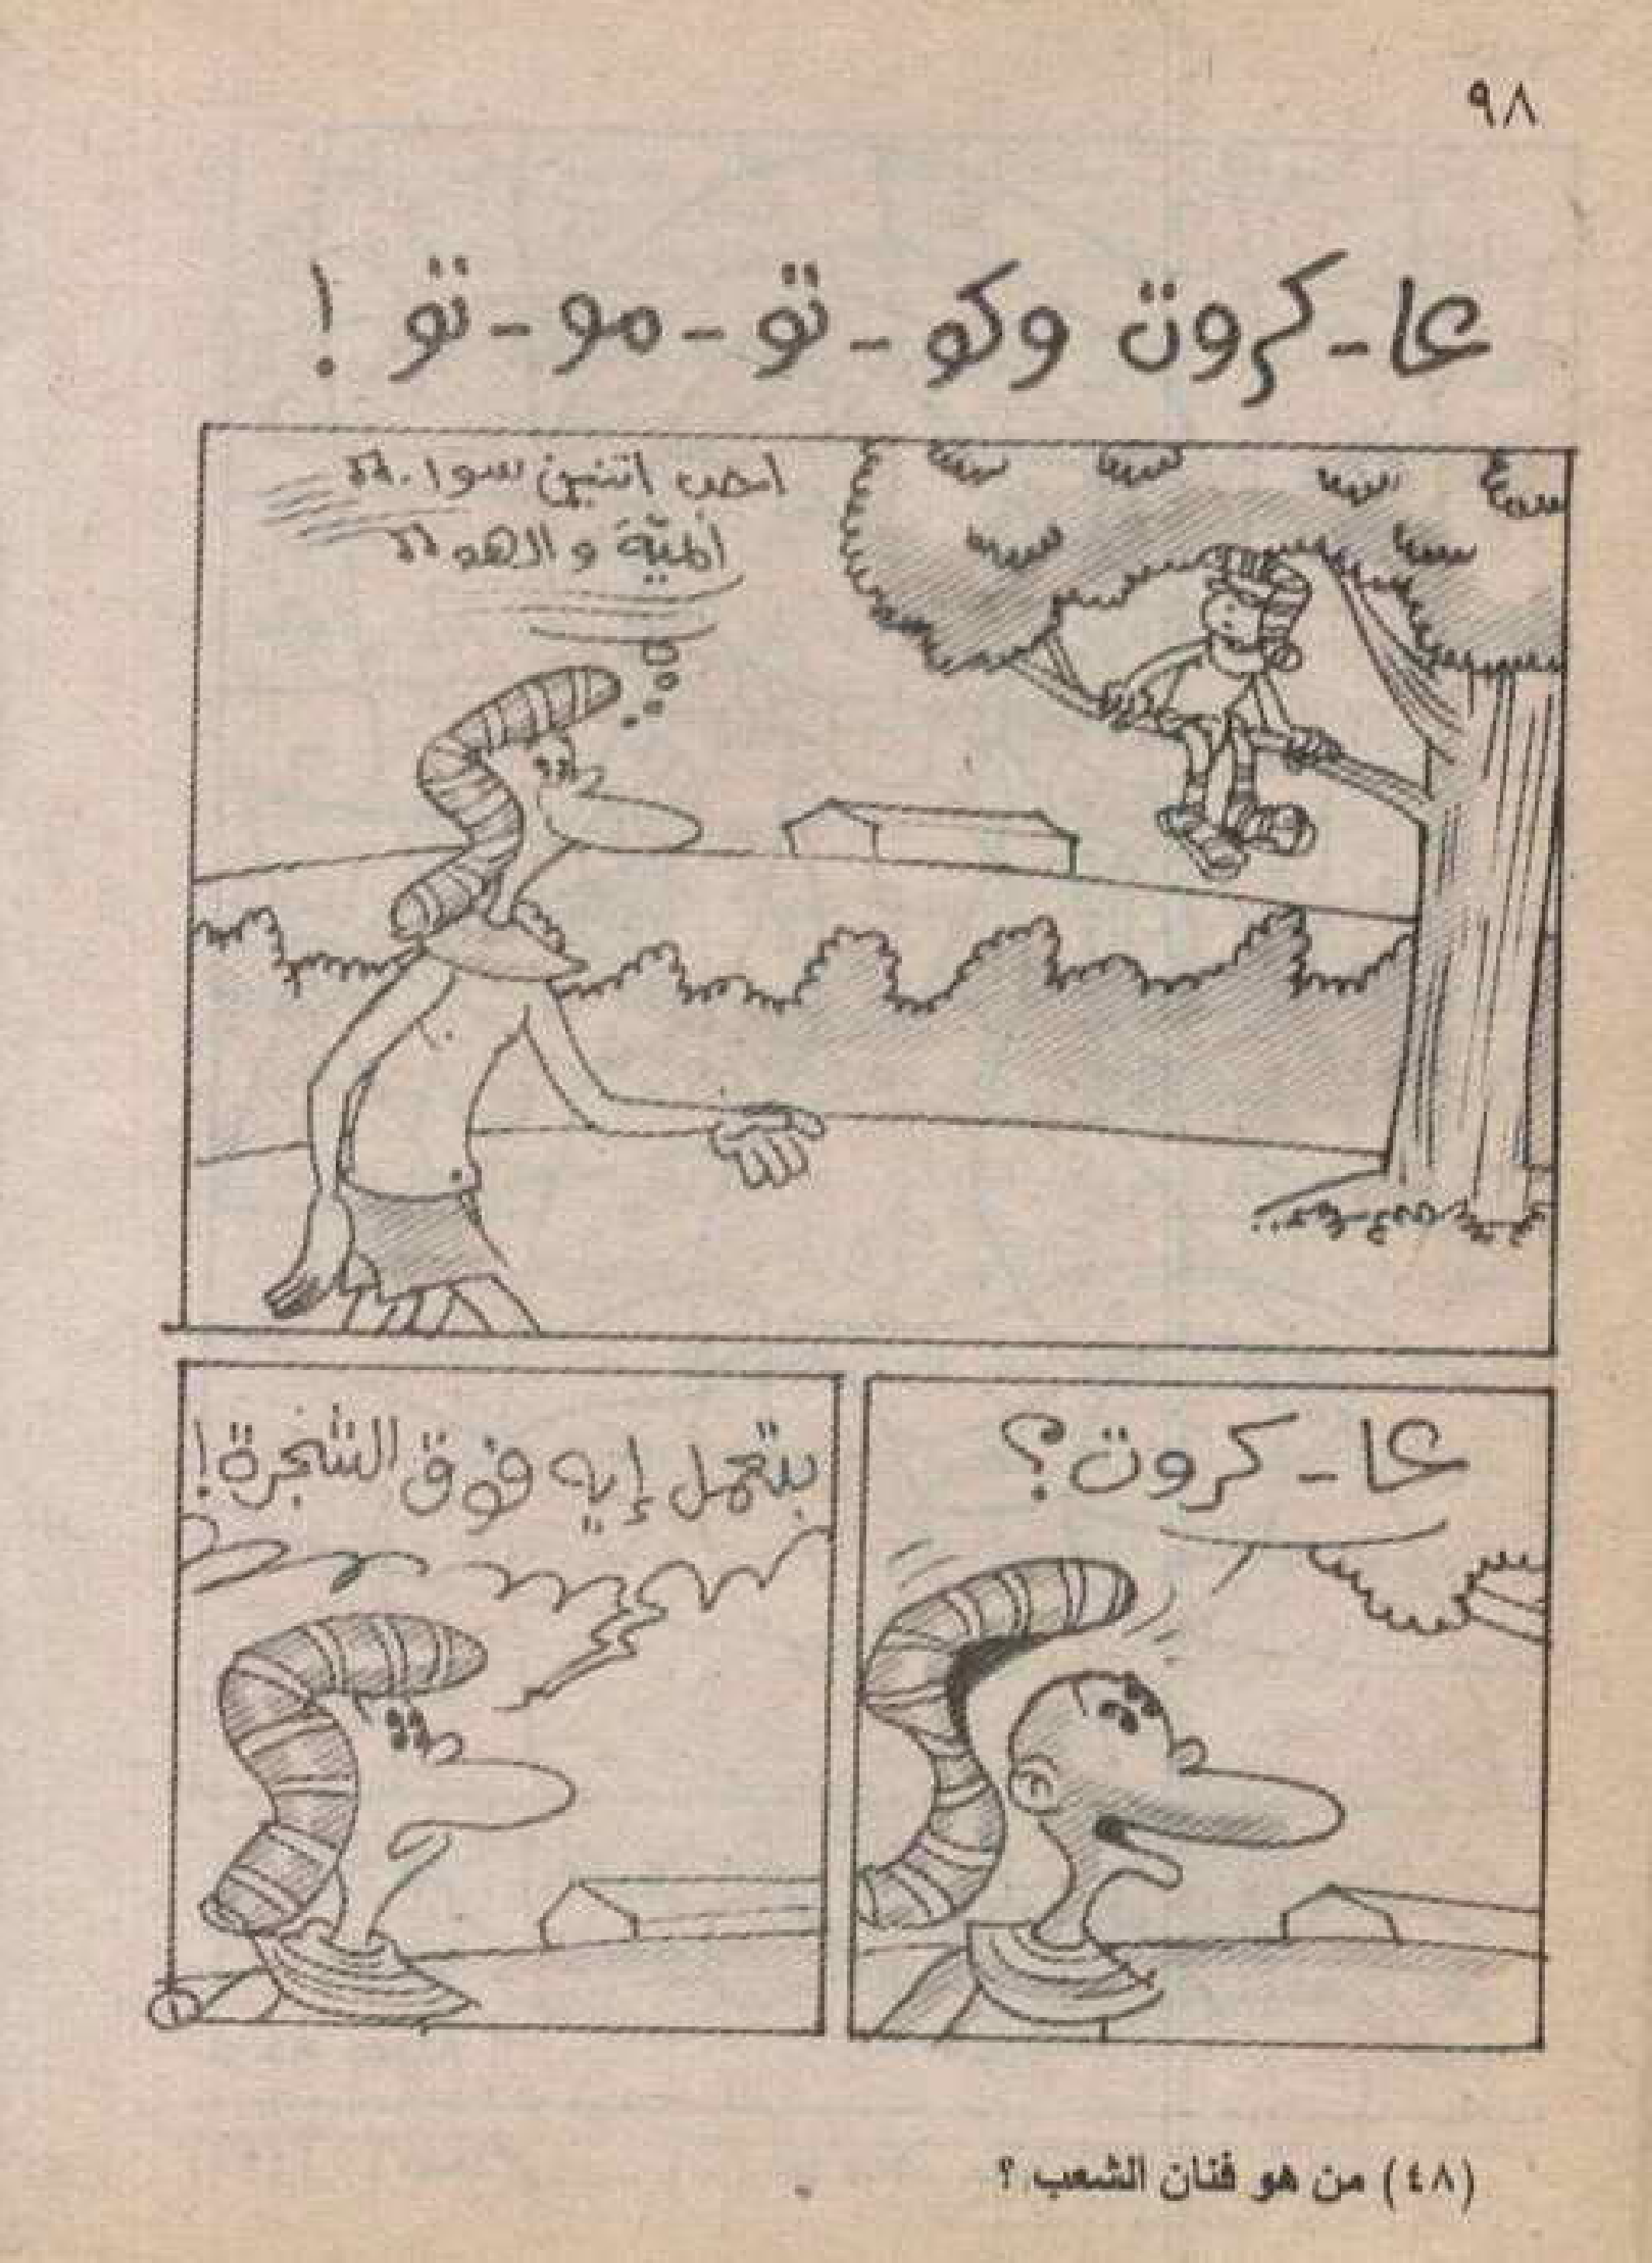 ٩٨
عا-كروت وكو-تو-مو-تو!
احب اتنين سوا.. هه
المية والهوا هه
عا-كروت؟
بتعمل إيه فوق الشجرة!
١
(٤٨) من هو فنان الشعب؟